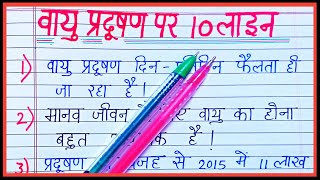 वायु प्रदूषण पर 10 लाइन
1) वायु प्रदूषण दिन- फैलता ही
जा रहा है !
2) मानव जीवन वायु का होना
बहुत है !
3) प्रदूषण से 2015 में 11 लाख